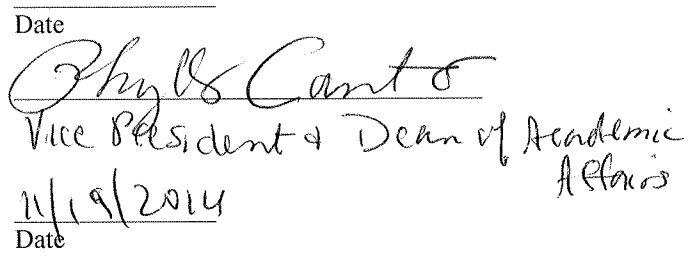 Date
Phyllis Cantor
Vice President & Dean of Academic
Affairs
11/19/2014
Date